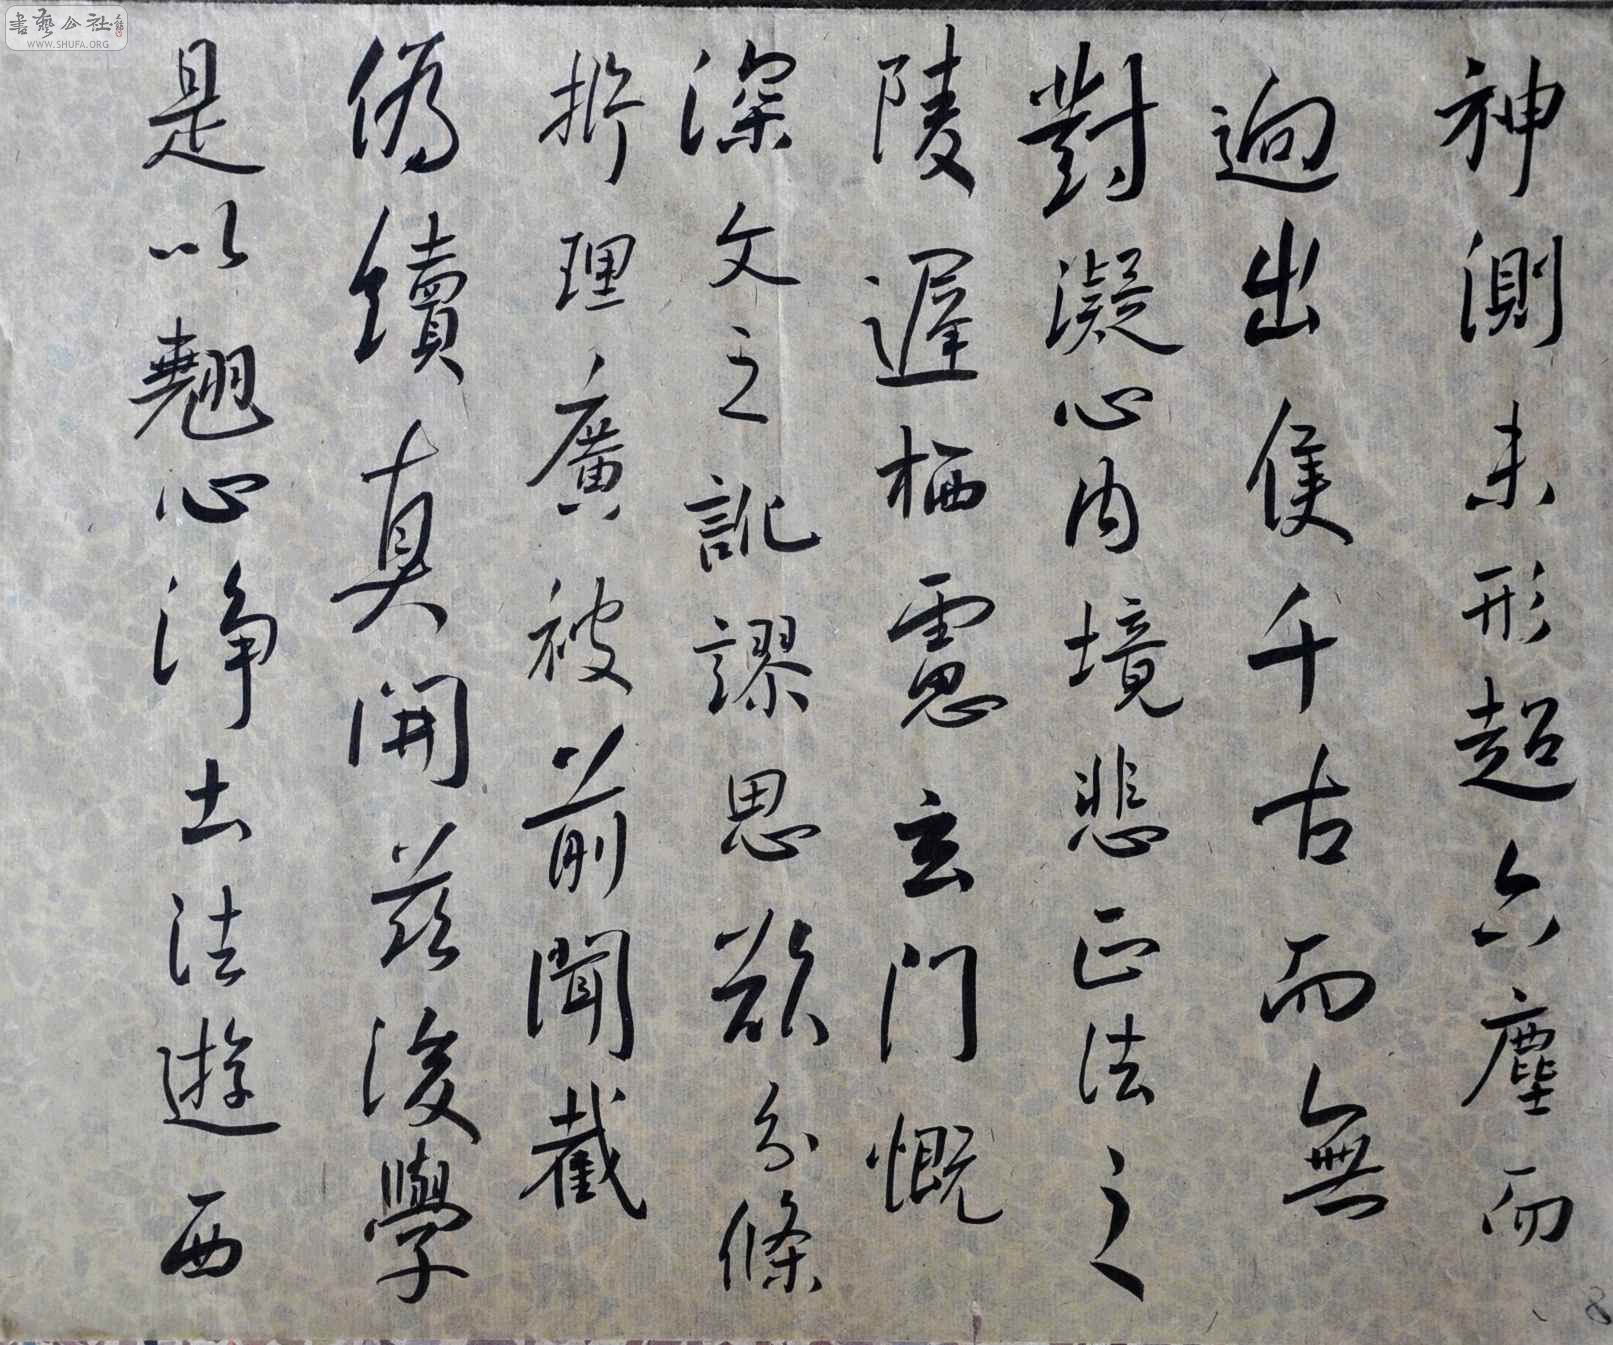 神測未形超六塵而
迥出隻千古而無
對凝心內境悲正法之
陵遲栖慮玄門慨
深文之訛謬思欲分條
析理廣彼前聞截
偽續真開茲後學
是以翹心淨土法遊西
書藝公社
WWW.SHUFA.ORG
8